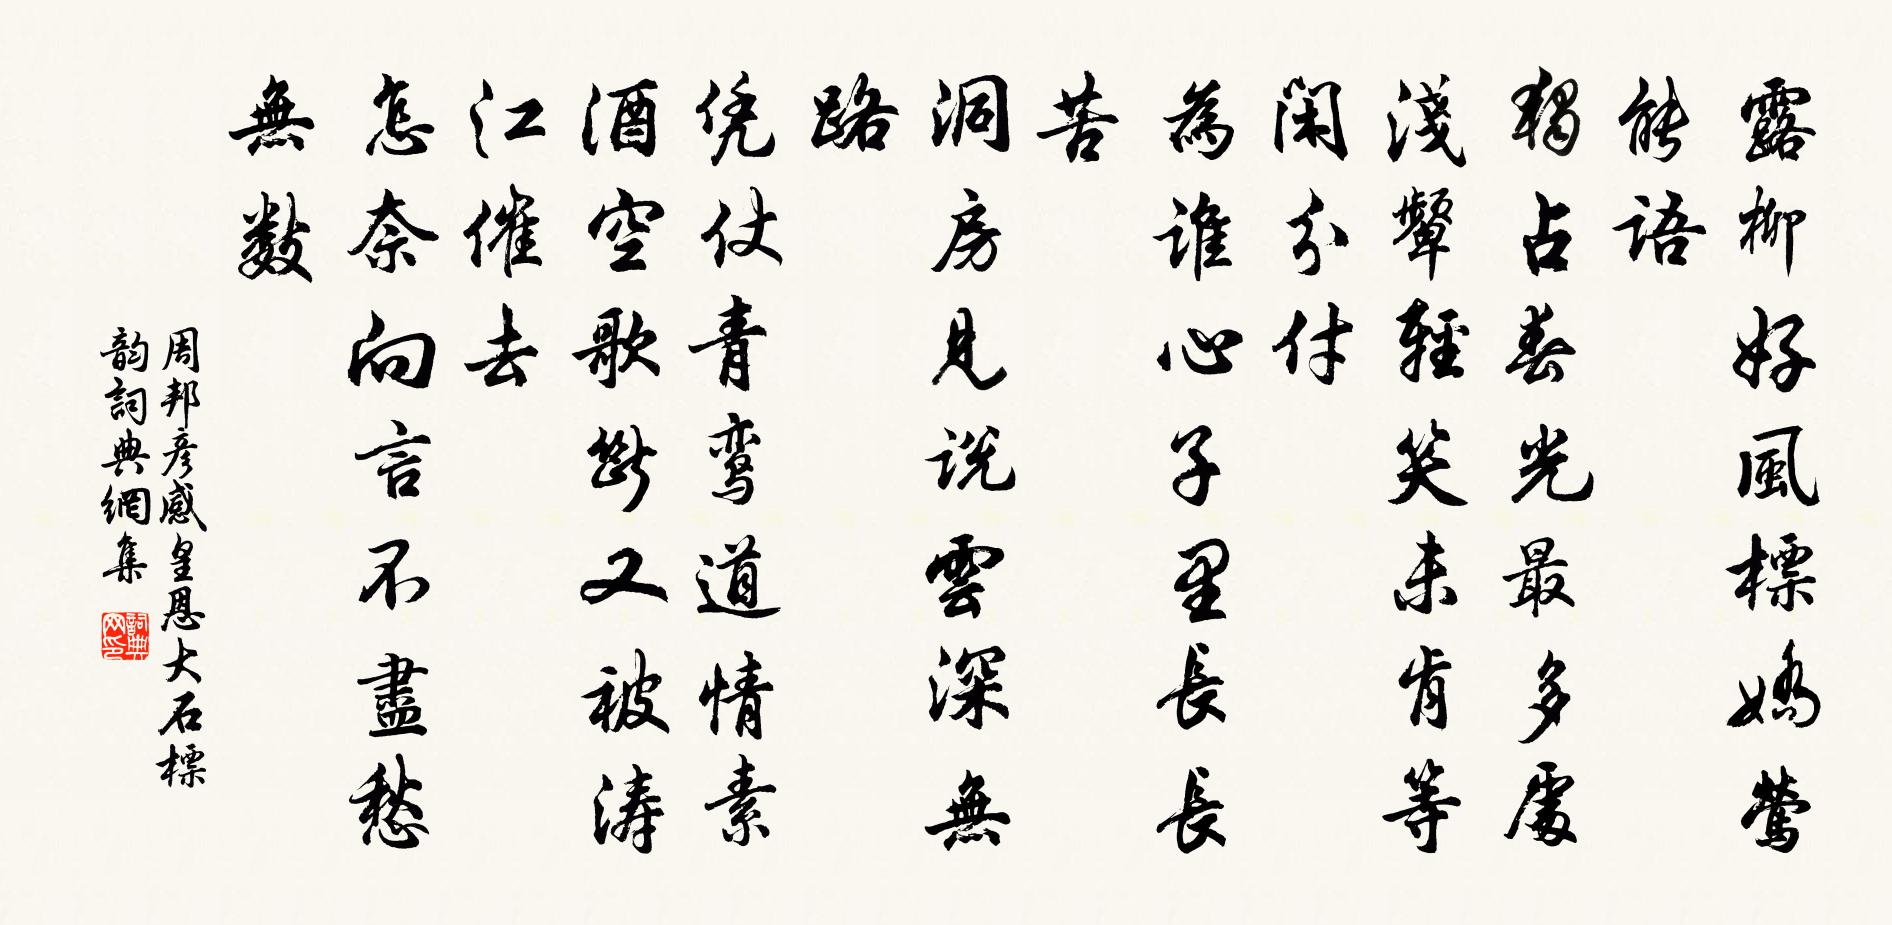 露柳好風標嬌鶯
能語
獨占春光最多處
淺顰輕笑未肯等
閑分付
為誰心子里長長
苦
洞房見说雲深無
路
凭仗青鸾道情素
酒空歌斷又被涛
江催去
怎奈向言不盡愁
無數
周邦彦感皇恩大石標
韵詞典網集
詞典网印